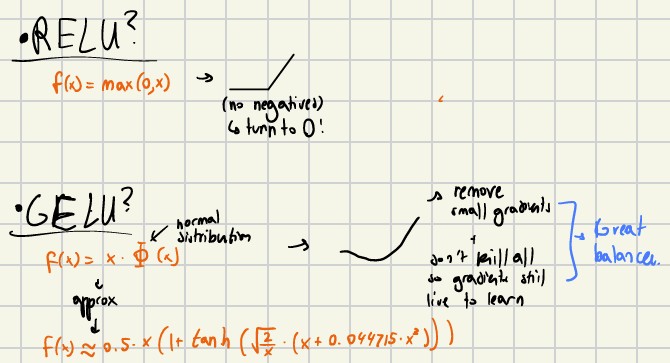 •RELU?
f(x) = max(0,x) →
(no negatives)
↳ turn to 0!
•GELU?
normal
distribution
f(x) = x · Φ(x) →
↓
approx
↓
f(x) ≈ 0.5 · x (1 + tanh (√2/x · (x + 0.044715 · x³)))
→ remove
small gradients
+
don't kill all
so gradients still
live to learn
→ Great
balancer.